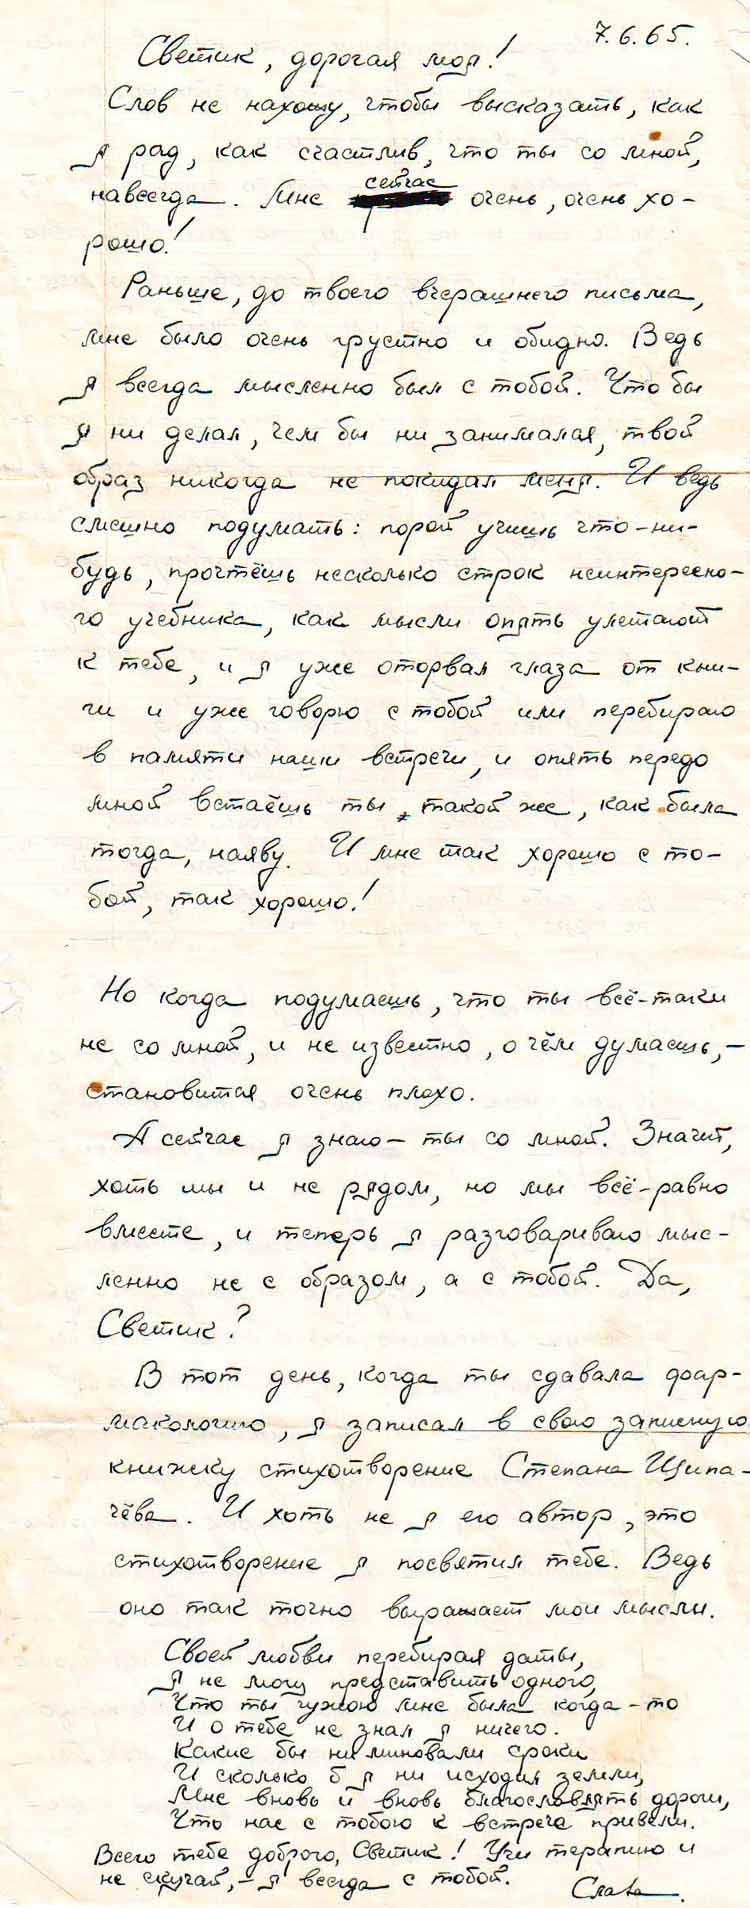 7.6.65.
Светик, дорогая моя!
Слов не нахожу, чтобы высказать, как
я рад, как счастлив, что ты со мной,
навсегда. Мне сейчас очень, очень хо-
рошо!
Раньше, до твоего вчерашнего письма,
мне было очень грустно и обидно. Ведь
я всегда мысленно был с тобой. Что бы
я ни делал, чем бы ни занимался, твой
образ никогда не покидал меня. И ведь
смешно подумать: порой учишь что-ни-
будь, прочтёшь несколько строк неинтересно-
го учебника, как мысли опять улетают
к тебе, и я уже оторвал глаза от кни-
ги и уже говорю с тобой или перебираю
в памяти наши встречи, и опять передо
мной встаёшь ты, такой же, как была
тогда, наяву. И мне так хорошо с то-
бой, так хорошо!
Но когда подумаешь, что ты всё-таки
не со мной, и не известно, о чём думаешь, –
становится очень плохо.
А сейчас я знаю – ты со мной. Значит,
хоть мы и не рядом, но мы всё-равно
вместе, и теперь я разговариваю мыс-
ленно не с образом, а с тобой. Да,
Светик?
В тот день, когда ты сдавала фар-
макологию, я записал в свою записную
книжку стихотворение Степана Щипа-
чёва. И хоть не я его автор, это
стихотворение я посвятил тебе. Ведь
оно так точно выражает мои мысли.
Своей любви перебирая даты,
Я не могу представить одного,
Что ты чужою мне была когда-то
И о тебе не знал я ничего.
Какие бы ни миновали сроки
И сколько б я ни исходил земли,
Мне вновь и вновь благословлять дороги,
Что нас с тобою к встрече привели.
Всего тебе доброго, Светик! Учи терапию и
не скучай, – я всегда с тобой.
Слава.